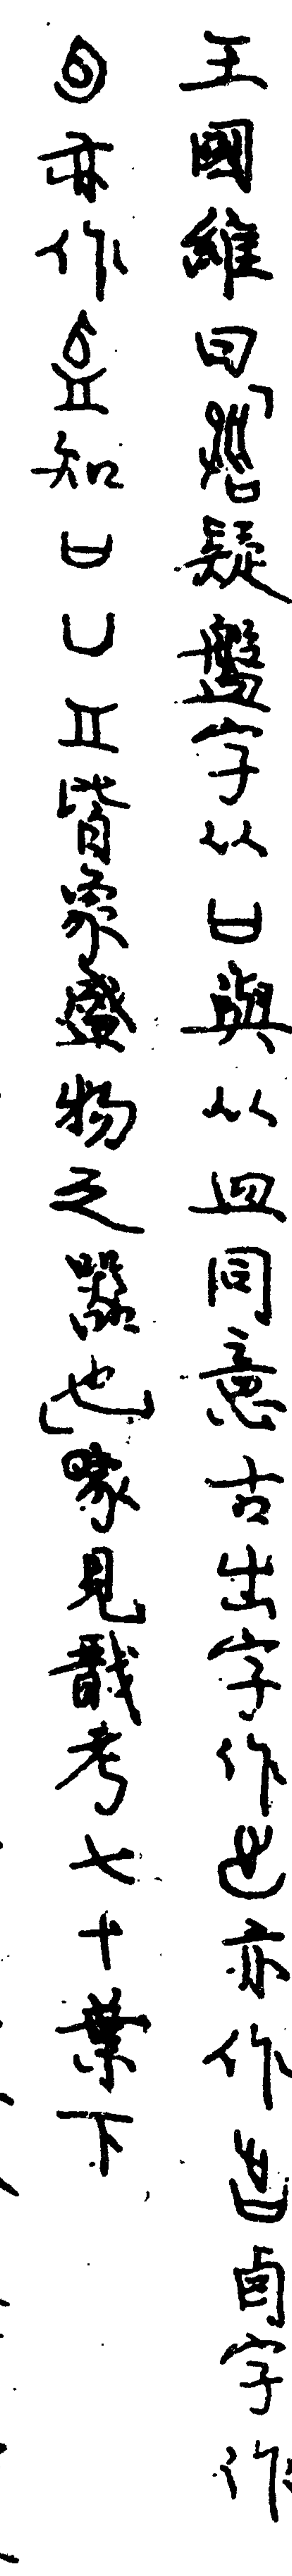 王國維曰「疑盤字从口與从皿同意古出字作亦作卣字作
亦作知口凵皆象盛物之器也」見戩考七十葉下